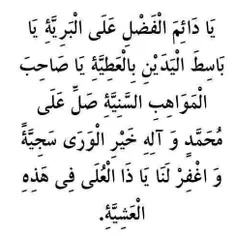 يَا دَائِمَ الْفَضْلِ عَلَى الْبَرِيَّةِ يَا
بَاسِطَ الْيَدَيْنِ بِالْعَطِيَّةِ يَا صَاحِبَ
الْمَوَاهِبِ السَّنِيَّةِ صَلِّ عَلَى
مُحَمَّدٍ وَ آلِهِ خَيْرِ الْوَرَى سَجِيَّةً
وَ اغْفِرْ لَنَا يَا ذَا الْعُلَى فِى هَذِهِ
الْعَشِيَّةِ.